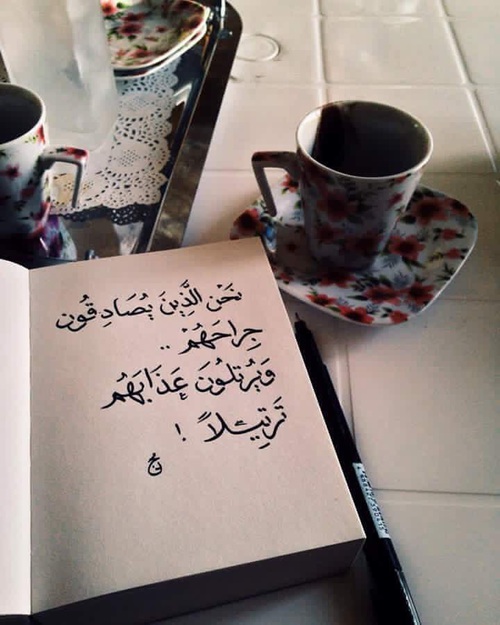 نَحْنُ الَّذِينَ يُصَادِقُون
جِرَاحَهُمْ ..
وَيُرَتِلُونَ عَذَابَهُم
تَرتِيلاً !
ج